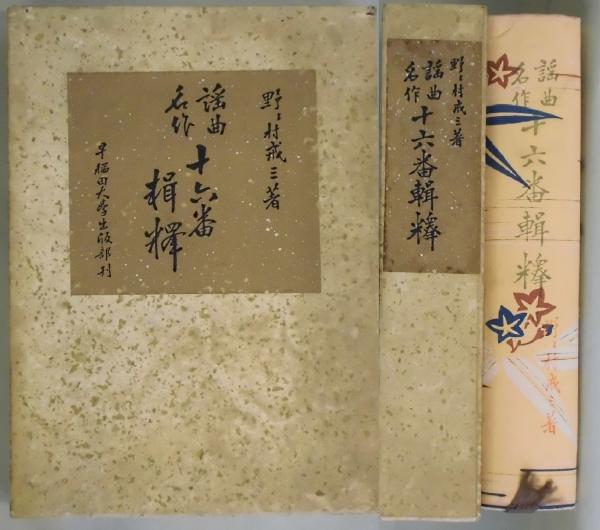 野々村戒三著
謡曲
名作
十六番
輯釋
早稲田大学出版部刊
野々村戒三著
謡曲
名作
十六番輯釋
謡曲
名作
十六番輯釋
村戒三著